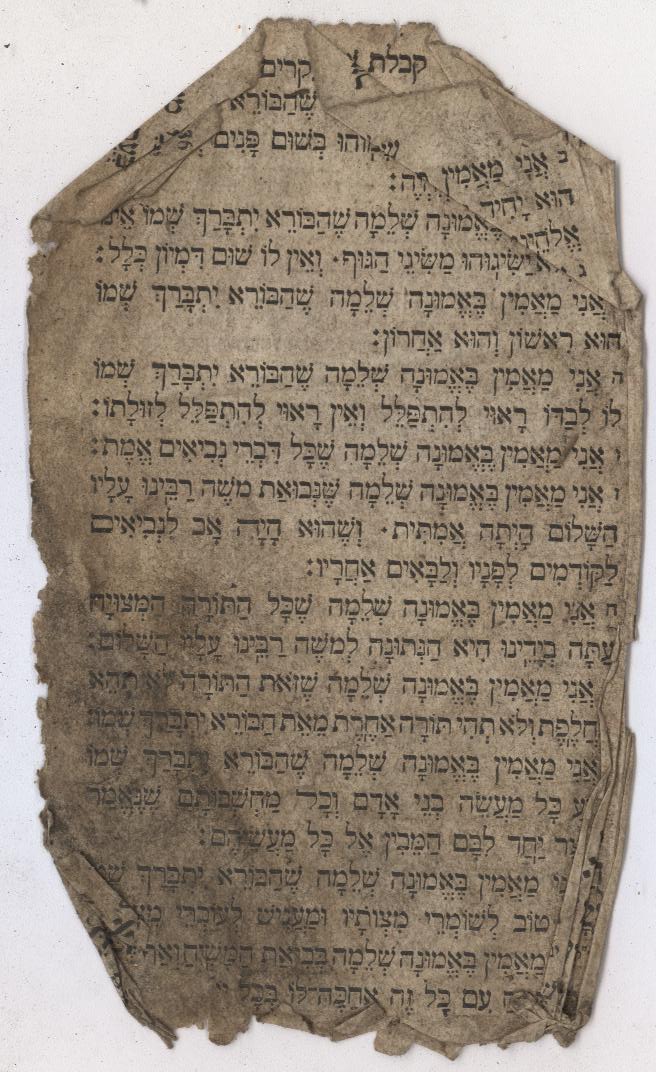 קבלת קרים
שֶׁהַבּוֹרֵא
כְּשׁוּם פָּנִים
ב אֲנִי מַאֲמִין
הוּא יָחִיד
הָיָה:
בֶּאֱמוּנָה שְׁלֵמָה שֶׁהַבּוֹרֵא יִתְבָּרַךְ שְׁמוֹ אֵינוֹ
יַשִּׂיגוּהוּ מַשִּׂיגֵי הַגּוּף. וְאֵין לוֹ שׁוּם דִּמְיוֹן כְּלָל:
אֲנִי מַאֲמִין בֶּאֱמוּנָה שְׁלֵמָה שֶׁהַבּוֹרֵא יִתְבָּרַךְ שְׁמוֹ
הוּא רִאשׁוֹן וְהוּא אַחֲרוֹן:
ה אֲנִי מַאֲמִין בֶּאֱמוּנָה שְׁלֵמָה שֶׁהַבּוֹרֵא יִתְבָּרַךְ שְׁמוֹ
לוֹ לְבַדּוֹ רָאוּי לְהִתְפַּלֵּל וְאֵין רָאוּי לְהִתְפַּלֵּל לְזוּלָתוֹ:
ו אֲנִי מַאֲמִין בֶּאֱמוּנָה שְׁלֵמָה שֶׁכָּל דִּבְרֵי נְבִיאִים אֱמֶת:
ז אֲנִי מַאֲמִין בֶּאֱמוּנָה שְׁלֵמָה שֶׁנְּבוּאַת משֶׁה רַבֵּינוּ עָלָיו
הַשָּׁלוֹם הָיְתָה אֲמִתִּית. וְשֶׁהוּא הָיָה אָב לַנְּבִיאִים
לַקּוֹדְמִים לְפָנָיו וְלַבָּאִים אַחֲרָיו:
ח אֲנִי מַאֲמִין בֶּאֱמוּנָה שְׁלֵמָה שֶׁכָּל הַתּוֹרָה הַמְּצוּיָה
עַתָּה בְיָדֵינוּ הִיא הַנְּתוּנָה לְמשֶׁה רַבֵּינוּ עָלָיו הַשָּׁלוֹם:
אֲנִי מַאֲמִין בֶּאֱמוּנָה שְׁלֵמָה שֶׁזֹּאת הַתּוֹרָה לֹא תְהֵא
חֲלֶפֶת וְלֹא תְהִי תוֹרָה אַחֶרֶת מֵאֵת הַבּוֹרֵא יִתְבָּרַךְ שְׁמוֹ:
אֲנִי מַאֲמִין בֶּאֱמוּנָה שְׁלֵמָה שֶׁהַבּוֹרֵא יִתְבָּרַךְ שְׁמוֹ
ע כָּל מַעֲשֵׂה בְּנֵי אָדָם וְכָל מַחְשְׁבוֹתָם שֶׁנֶּאֱמַר
יַחַד לִבָּם הַמֵּבִין אֶל כָּל מַעֲשֵׂיהֶם:
מַאֲמִין בֶּאֱמוּנָה שְׁלֵמָה שֶׁהַבּוֹרֵא יִתְבָּרַךְ
טוֹב לְשׁוֹמְרֵי מִצְוֹתָיו וּמַעֲנִישׁ לְעוֹבְרֵי
מַאֲמִין בֶּאֱמוּנָה שְׁלֵמָה בְּבִיאַת הַמָּשִׁיחַ
עִם כָּל זֶה אֲחַכֶּה לּוֹ בְּכָל